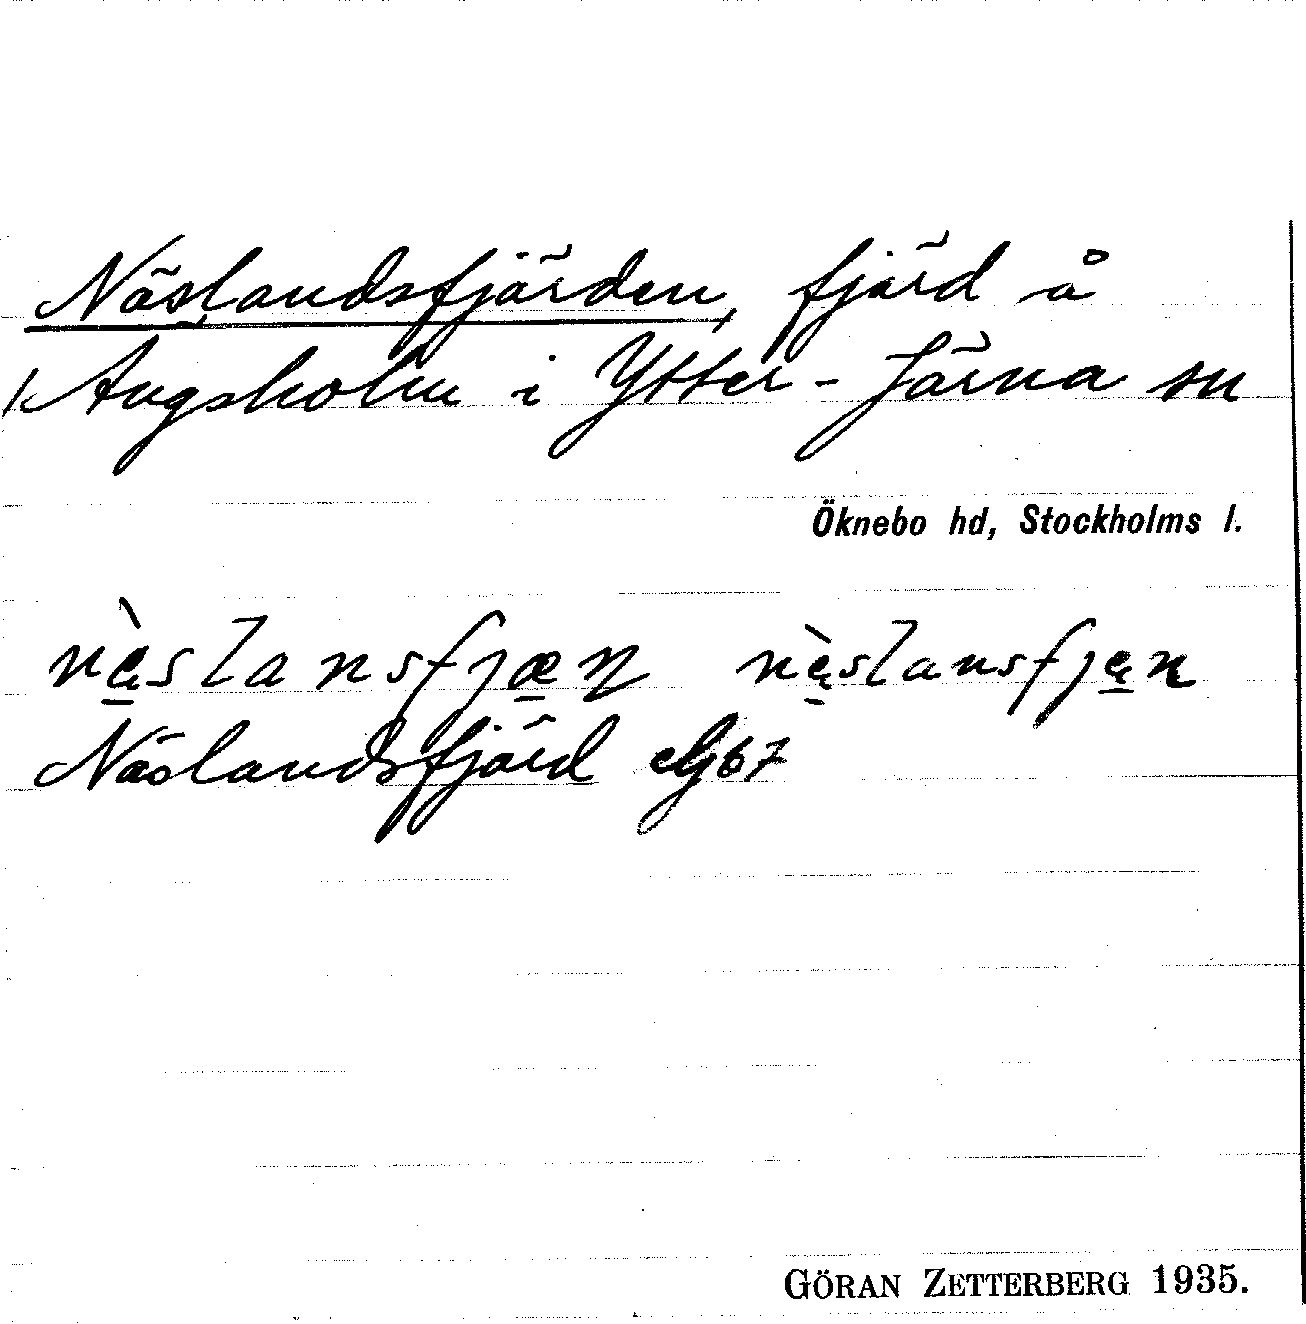 Näslandsfjärden, fjärd å
Ängsholm i Ytter-Järna sn
Öknebo hd, Stockholms l.
nä̀slansfjæɳ nä̀slansfjäɳ
Näslandsfjärd
GÖRAN ZETTERBERG 1935.